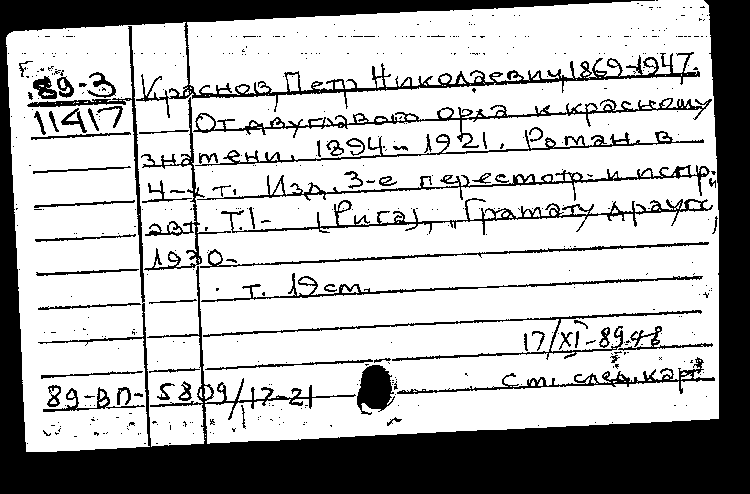 89-3
11417
Краснов, Петр Николаевич, 1869-1947.
От двуглавого орла к красному
знамени. 1894 - 1921. Роман. В
4-х т. Изд. 3-е пересмотр. и испр.
авт. Т.1- [Рига], "Грамату драугс",
1930-
т. 19 см.
17/XI-89
89-ВП-5809/17-21
См. след. карт.